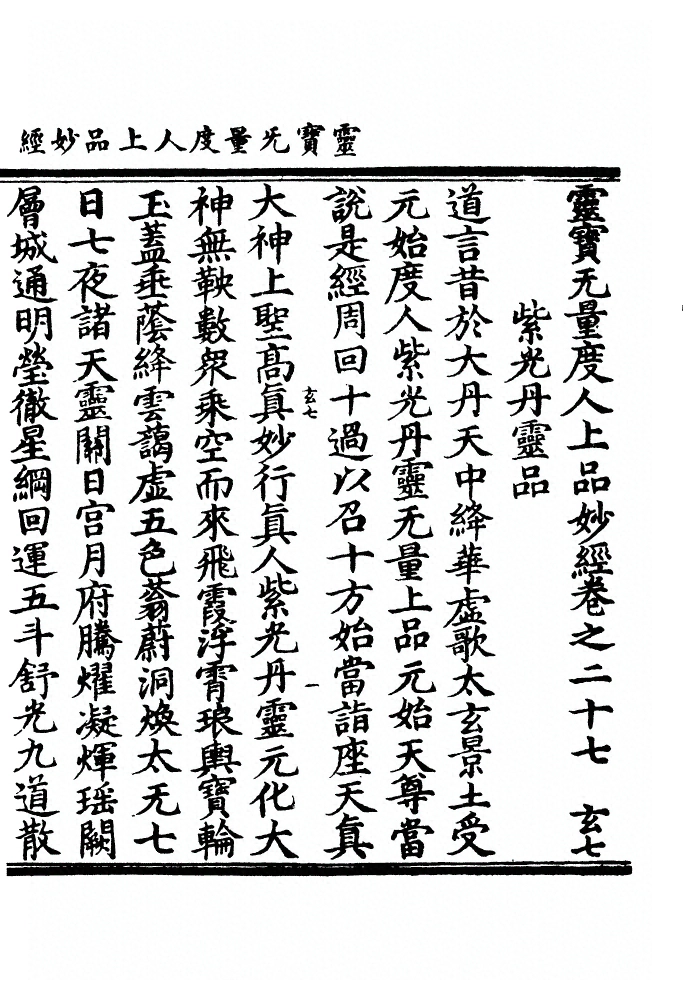 靈寶无量度人上品妙經
靈寶无量度人上品妙經卷之二十七　玄七
紫光丹靈品
道言昔於大丹天中絳華虛歌太玄景土受
元始度人紫光丹靈无量上品元始天尊當
說是經周回十過以召十方始當詣座天真
玄七
一
大神上聖高真妙行真人紫光丹靈元化大
神無鞅數眾乘空而來飛霞浮霄琅輿寶輪
玉蓋垂蔭絳雲藹虛五色蓊蔚洞煥太无七
日七夜諸天靈關日宮月府騰耀凝輝瑤闕
層城通明瑩徹星綱回運五斗舒光九道散